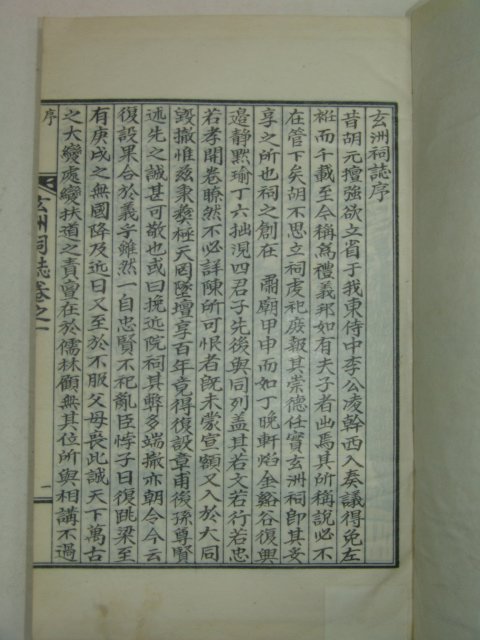 玄洲祠誌序
昔胡元擅強欲立省于我東侍中李公凌幹西入奏議得免左
袵而千載至今稱為禮義邦如有夫子者出焉其所稱說必不
在管下矣胡不思立祠虔祀庶報其崇德任實玄洲祠即其妥
享之所也祠之創在 肅廟甲申而如丁晩軒焰金谿谷復興
邉静黙瑜丁六拙涀四君子先後與同列盖其若文若行若忠
若孝開卷瞭然不必詳陳所可恨者既未蒙宣額又入於大同
毀撤惟玆秉彜極天罔墜壇享百年竟得復設章甫後孫尊賢
述先之誠甚可敬也或曰挽近院祠其弊多端撤亦朝令今云
復設果合於義乎雖然一自忠賢不祀亂臣悖子日復跳梁至
有庚戌之無國降及近日又至於不服父母喪此誠天下萬古
之大變處變扶道之責亶在於儒林顧無其位所與相講不過
玄洲祠誌卷之一
序
一